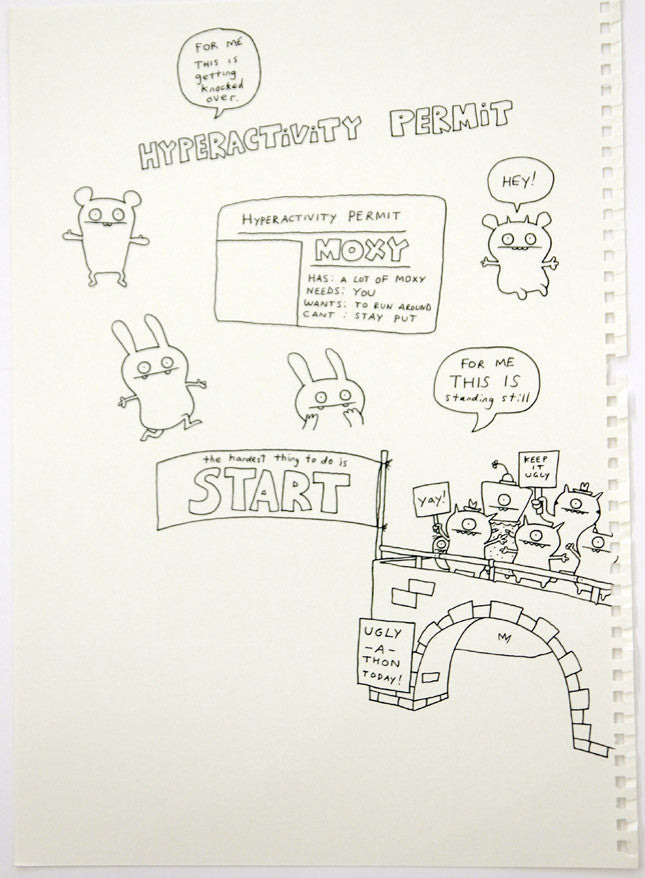 FOR ME
THIS IS
getting
knocked
over.
HYPERACTIVITY PERMIT
HEY!
HYPERACTIVITY PERMIT
MOXY
HAS: A LOT OF MOXY
NEEDS: YOU
WANTS: TO RUN AROUND
CANT : STAY PUT
FOR ME
THIS IS
standing still
the hardest thing to do is
START
KEEP
IT
UGLY
yay!
UGLY
-A-
THON
TODAY!